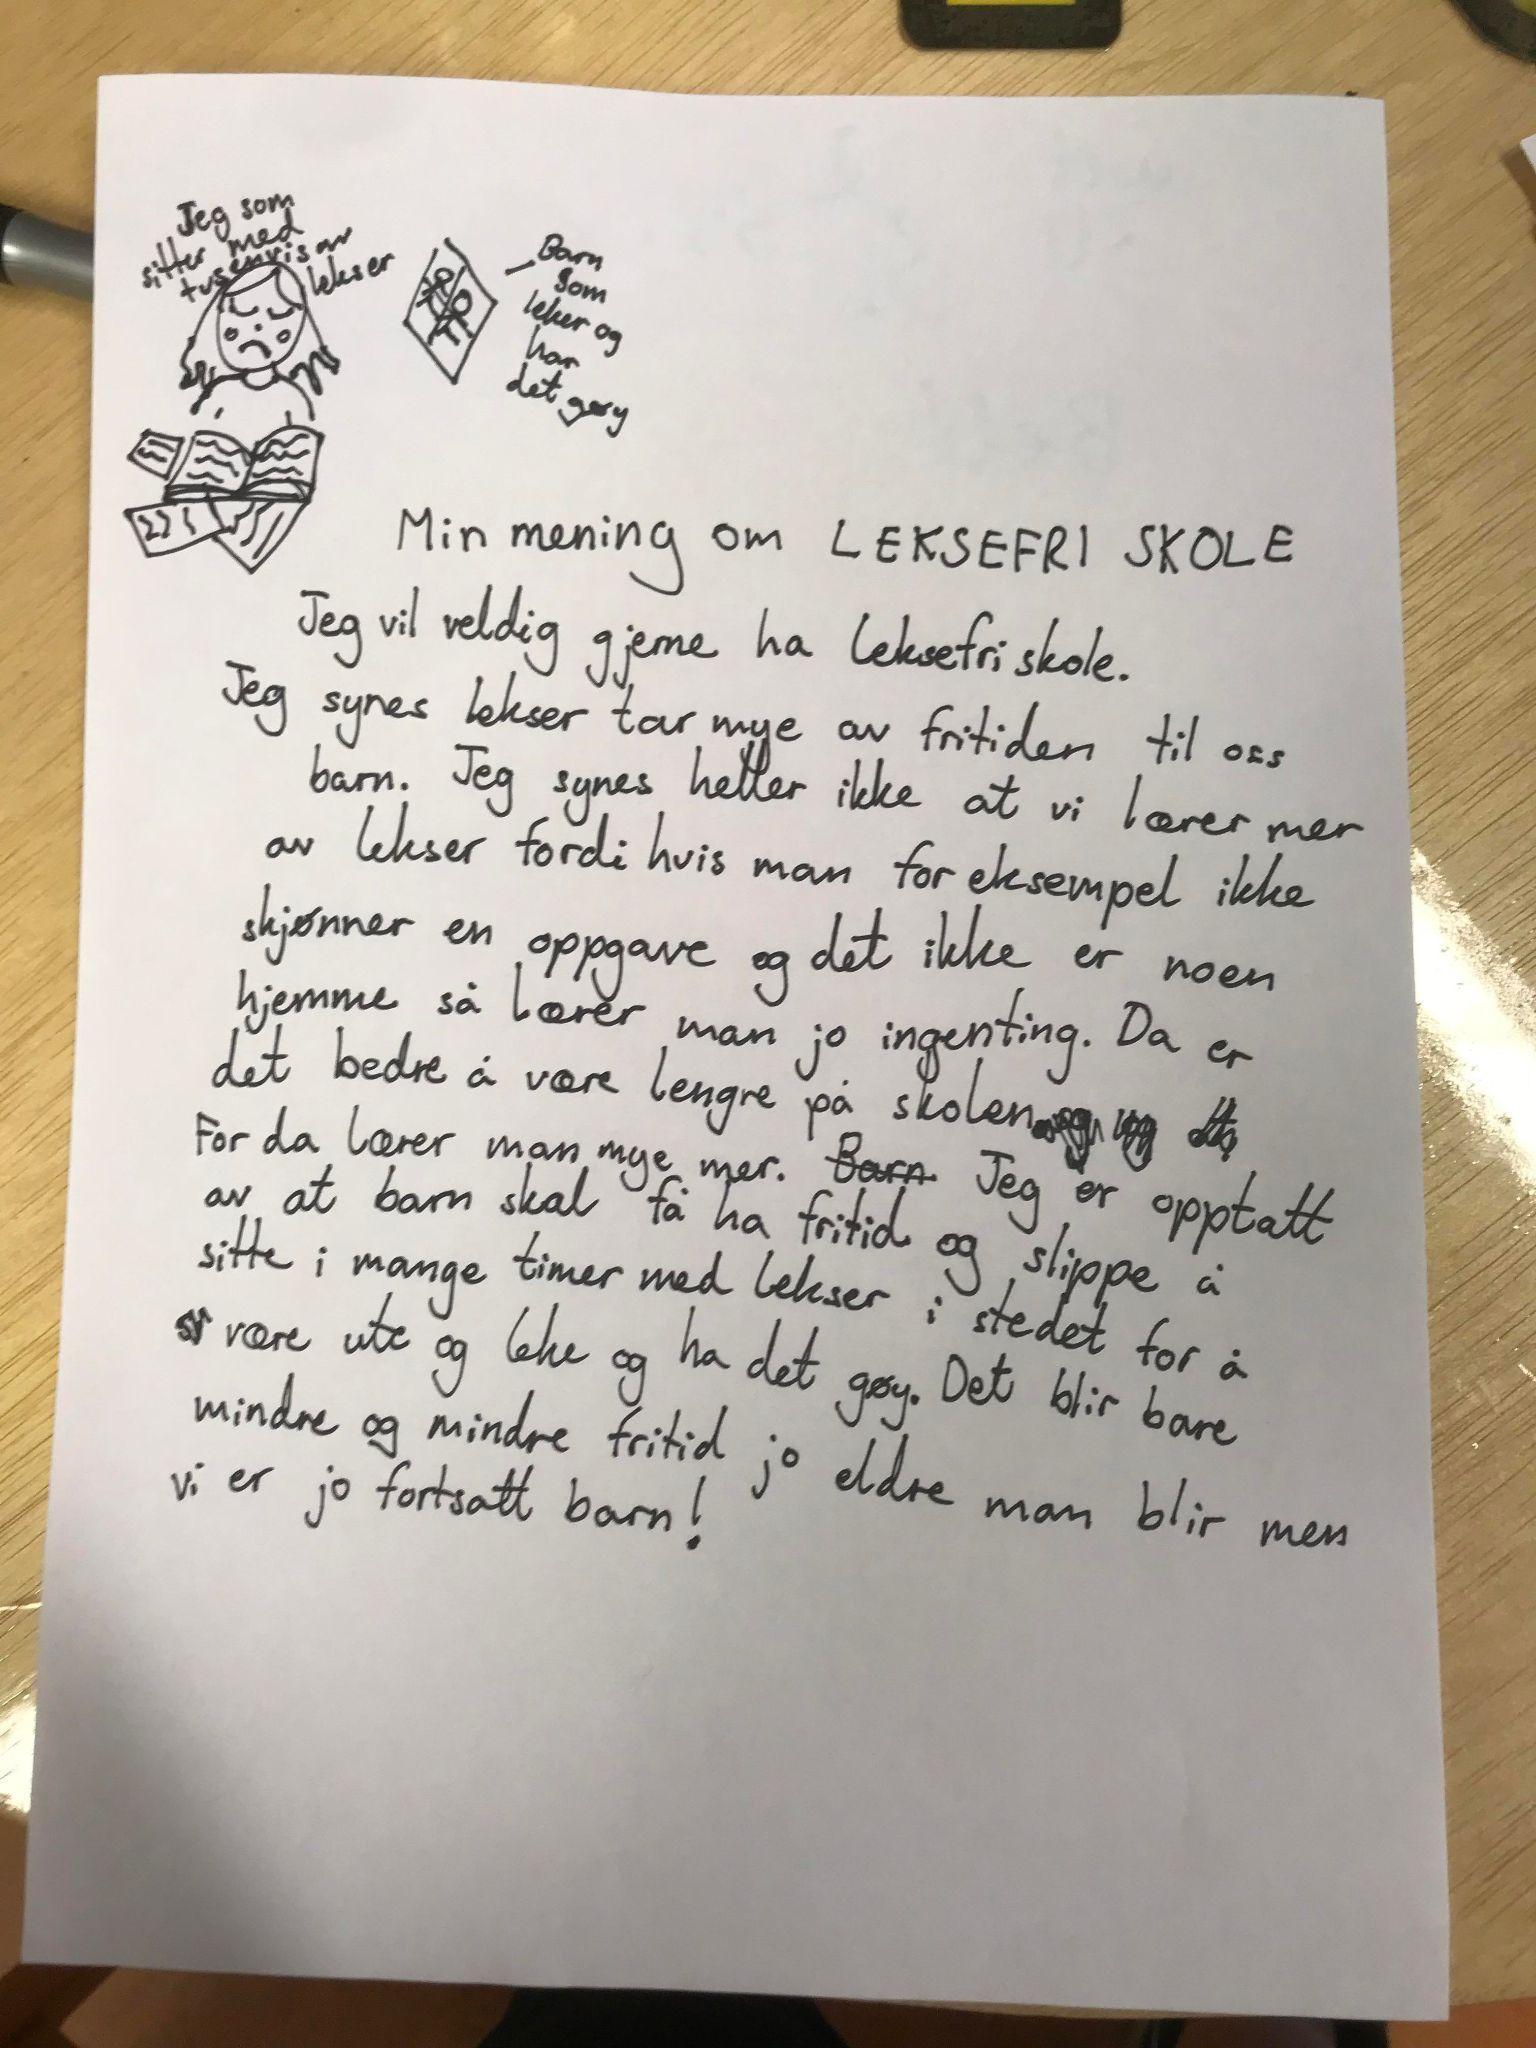 Jeg som
sitter med
tusenvis av
lekser
Barn
som
leker og
har
det gøy
Min mening om LEKSEFRI SKOLE
Jeg vil veldig gjerne ha leksefri skole.
Jeg synes lekser tar mye av fritiden til oss
barn. Jeg synes heller ikke at vi lærer mer
av lekser fordi hvis man for eksempel ikke
skjønner en oppgave og det ikke er noen
hjemme så lærer man jo ingenting. Da er
det bedre å være lengre på skolen
For da lærer man mye mer. Barn Jeg er opptatt
av at barn skal få ha fritid og slippe å
sitte i mange timer med lekser i stedet for å
være ute og leke og ha det gøy. Det blir bare
mindre og mindre fritid jo eldre man blir men
vi er jo fortsatt barn!